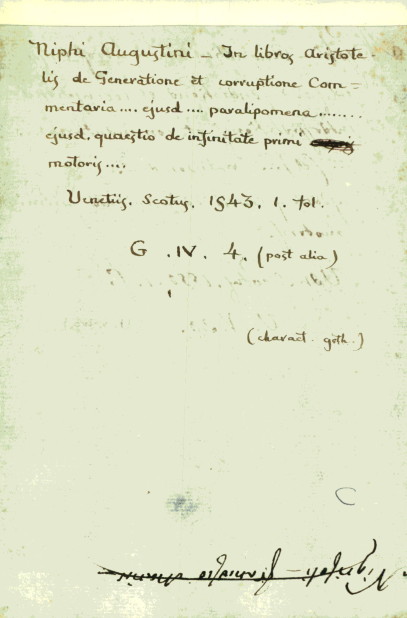 Niphi Augustini – In libros Aristote-
lis de Generatione et corruptione Com-
mentaria .... ejusd .... paralipomena ........
ejusd. quaestio de infinitate primi
motoris ....
Venetiis. Scotus. 1543. 1. fol.
G . IV . 4. (post alia)
(charact. goth.)